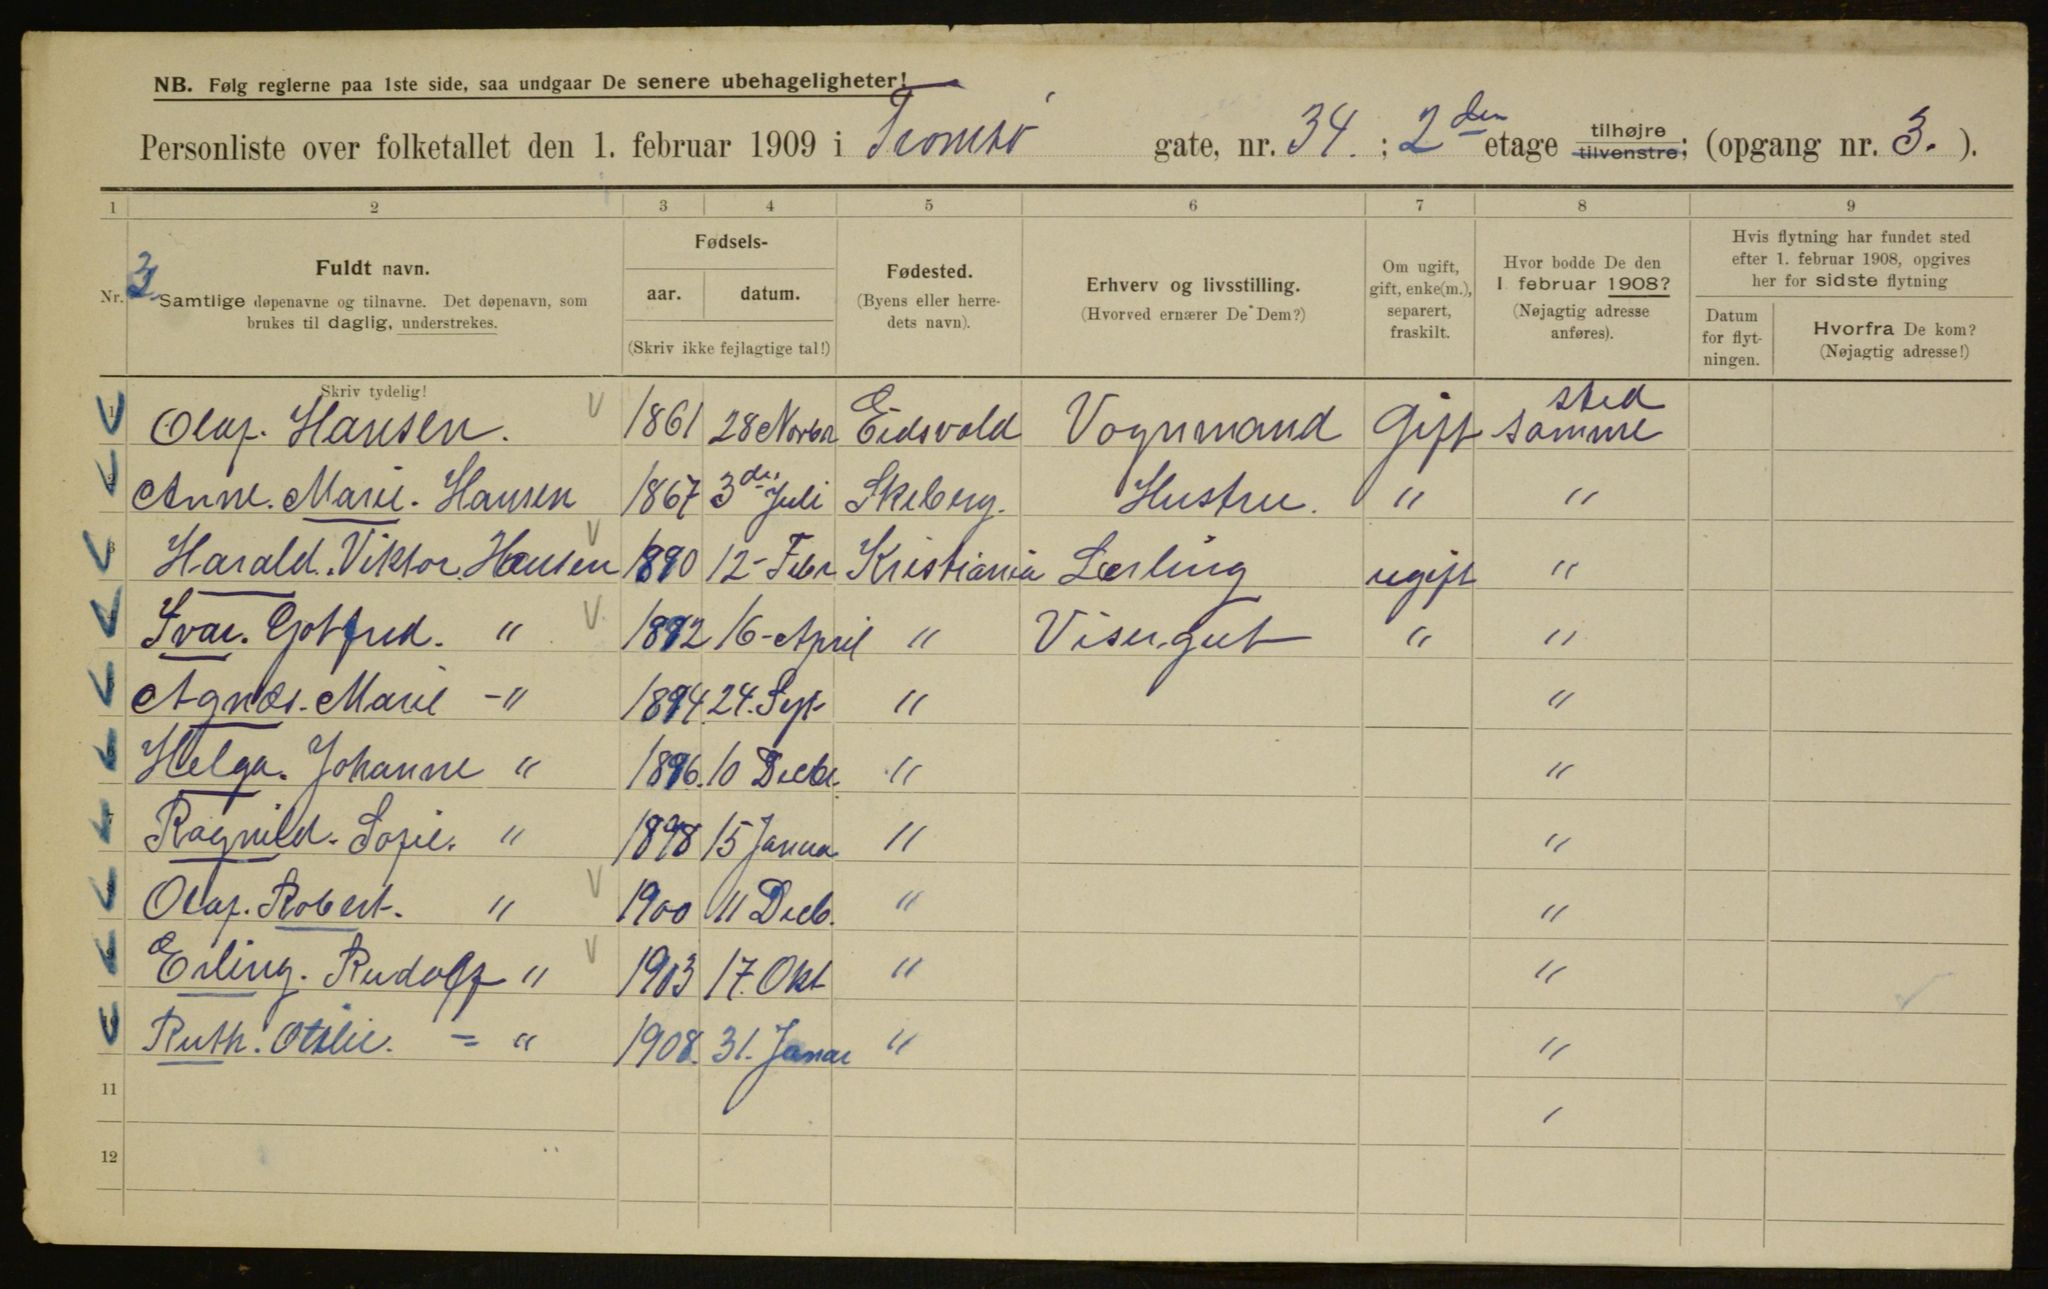 NB. Følg reglerne paa 1ste side, saa undgaar De senere ubehageligheter!
Personliste over folketallet den 1. februar 1909 i Tromsø gate, nr. 34. ; 2den etage tilhøjre tilvenstre; (opgang nr. 3. ).
1 2 3 4 5 6 7 8 9
Nr. 3
Fuldt navn.
Samtlige døpenavne og tilnavne. Det døpenavn, som
brukes til daglig, understrekes.
Fødsels-
aar. datum.
(Skriv ikke fejlagtige tal!)
Fødested.
(Byens eller herre-
dets navn).
Erhverv og livsstilling.
(Hvorved ernærer De Dem?)
Om ugift,
gift, enke(m.),
separert,
fraskilt.
Hvor bodde De den
1. februar 1908?
(Nøjagtig adresse
anføres).
Hvis flytning har fundet sted
efter 1. februar 1908, opgives
her for sidste flytning
Datum
for flyt-
ningen.
Hvorfra De kom?
(Nøjagtig adresse!)
Skriv tydelig!
1 Olaf. Hansen. 1861 28 Novbr Eidsvold Vognmand Gift samme sted
2 Anne. Marie. Hansen 1867 3die Juli Skeberg. Hustru. " "
3 Harald. Viktor. Hansen 1890 12- Febr Kristiania Lærling ugift "
4 Ivar. Gotfred. " 1892 16- April " Visergut " "
5 Agnes. Marie -" 1894. 24. Sept " "
6 Helga. Johanne " 1896. 10 Decbr. " "
7 Ragnild. Sofie. " 1898 15 Janua " "
8 Olaf. Robert. " 1900 11 Decb. " "
9 Erling. Rudolf " 1903 17. Okt " "
10 Ruth. Otilie. = " 1908. 31. Janar " "
11
12